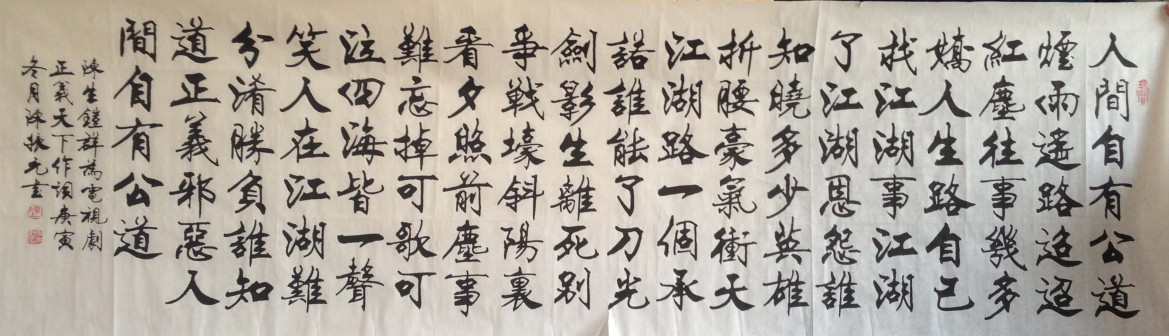 人間自有公道
煙雨遥路迢迢
紅塵往事幾多
嬌人生路自己
找江湖事江湖
了江湖恩怨誰
知曉多少英雄
折腰豪氣衝天
江湖路一個承
諾誰能了刀光
劍影生離死别
爭戰壕斜陽裏
看夕照前塵事
難忘掉可歌可
泣四海皆一聲
笑人在江湖難
分淆勝負誰知
道正義邪惡人
間自有公道
陳生鏜群為電視劇
正義天下作詞庚寅
冬月陳振元書